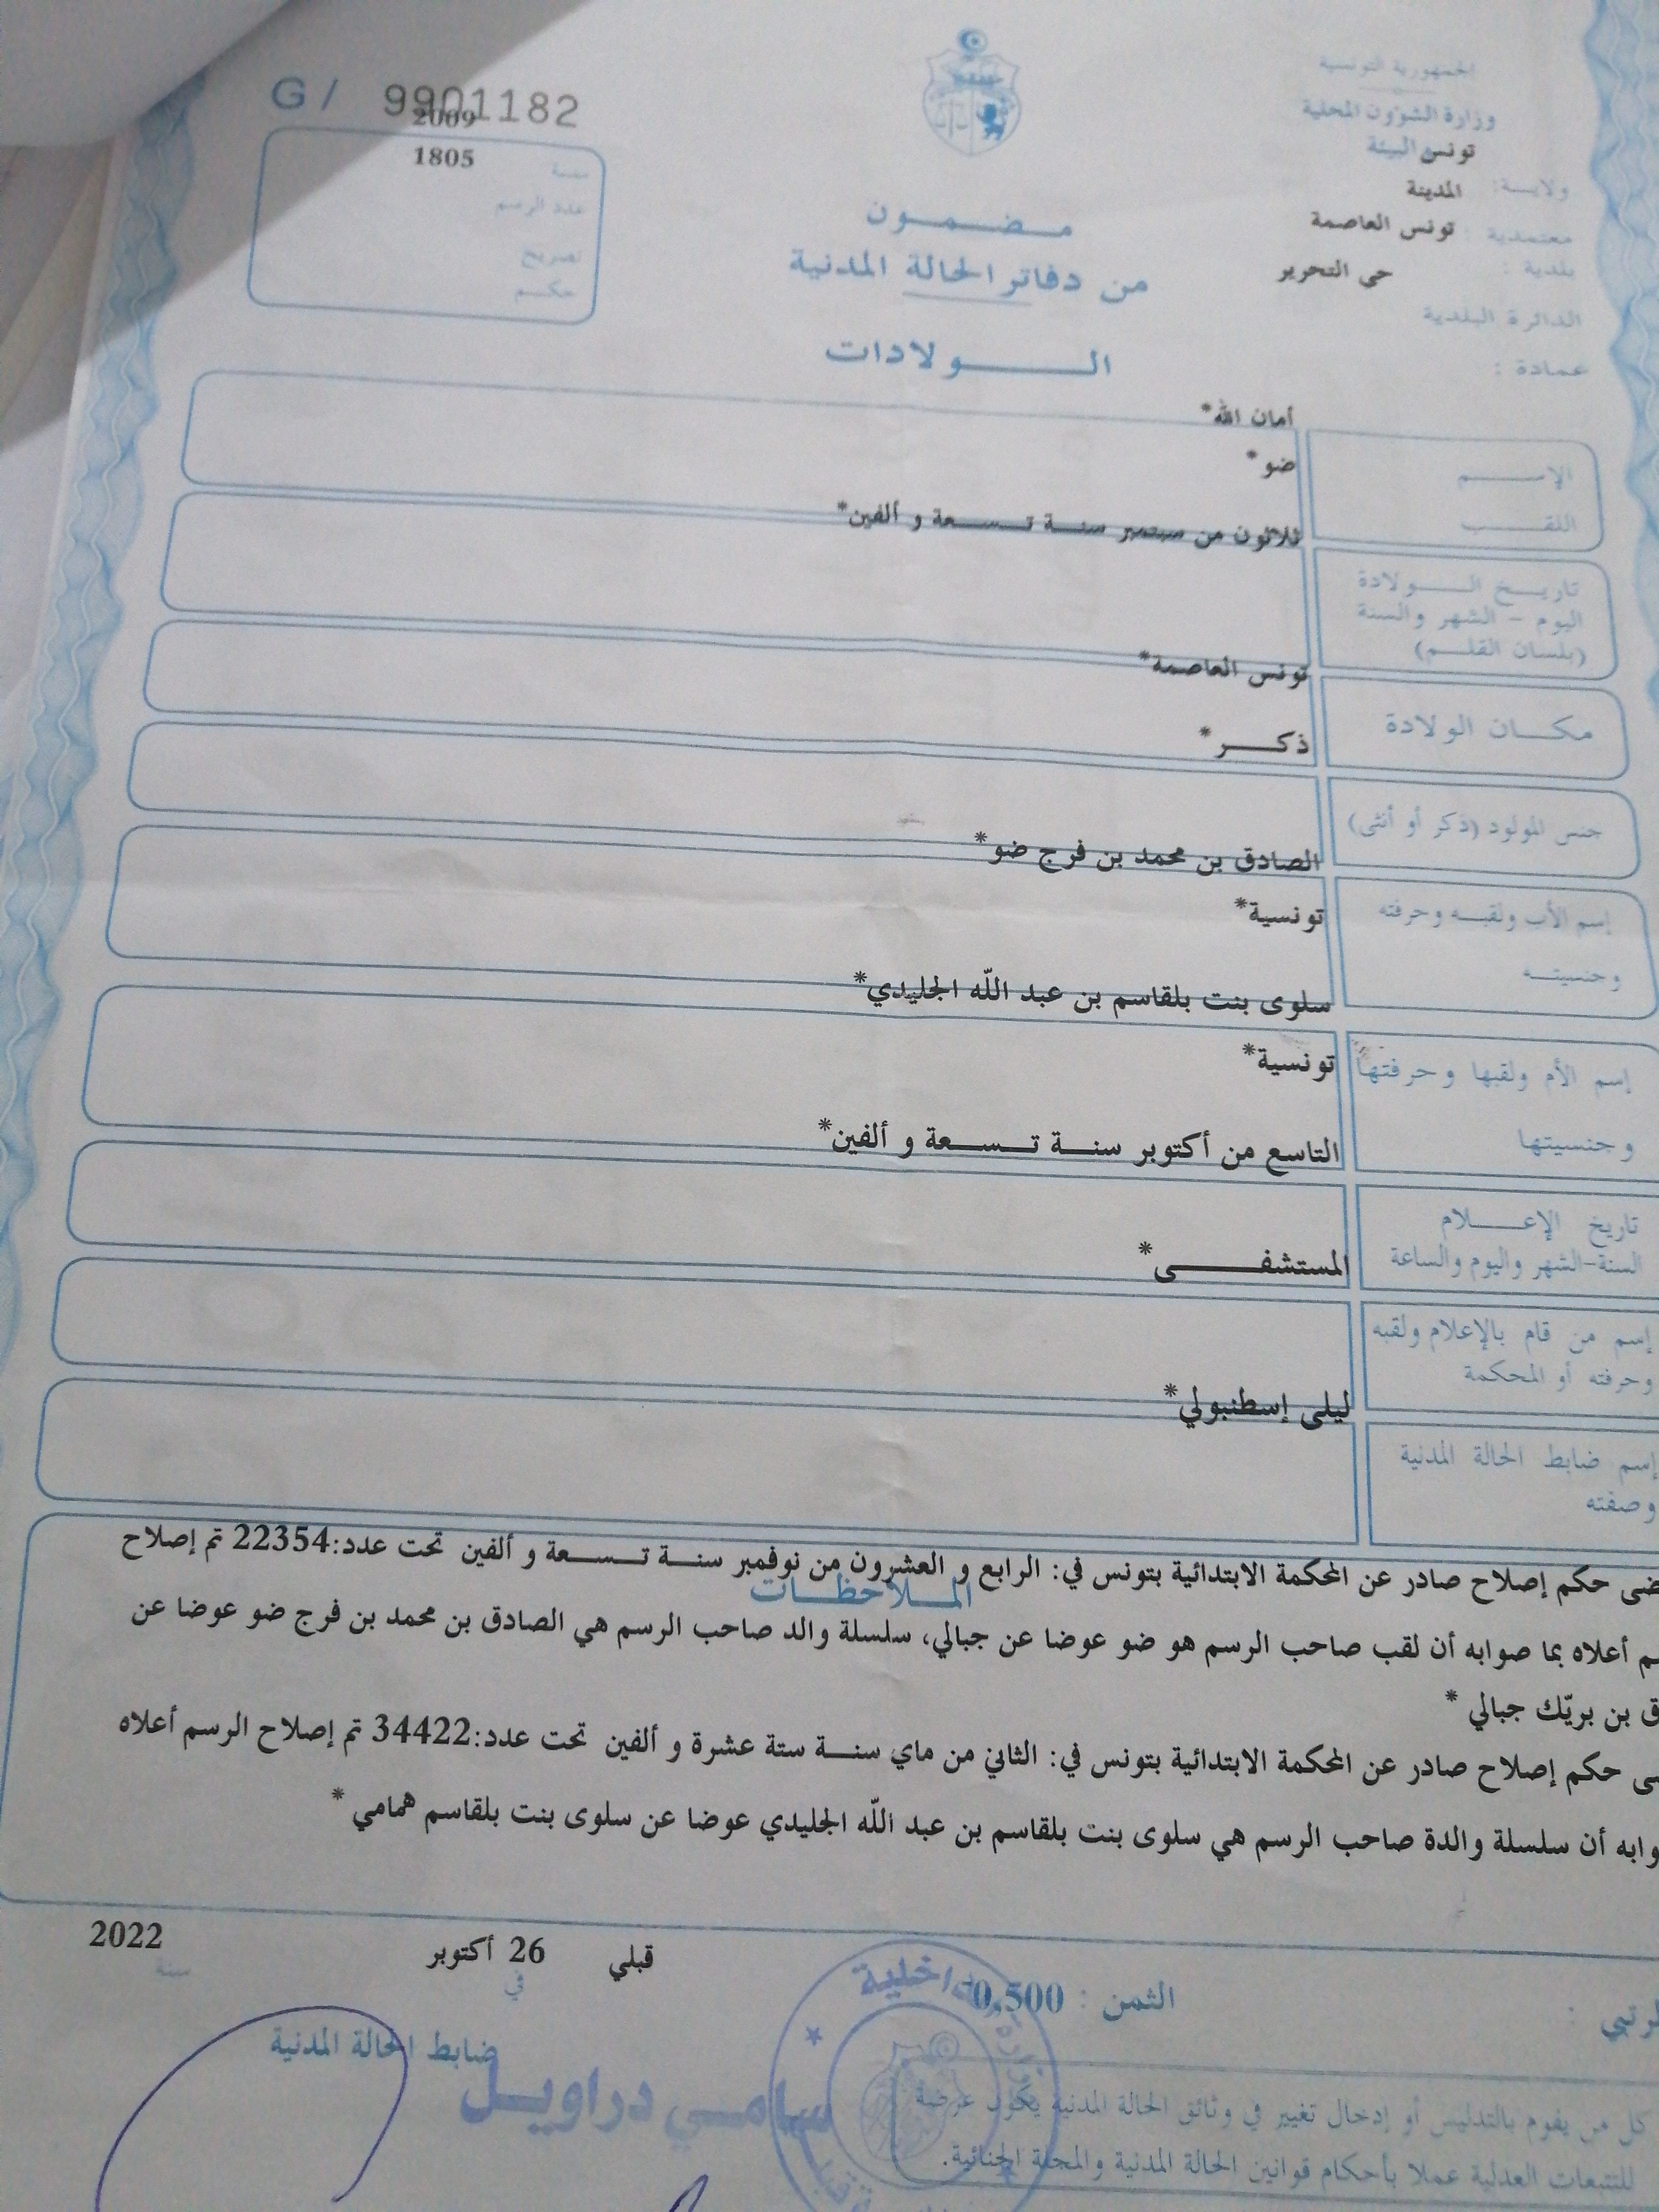 الجمهورية التونسية
وزارة الشؤون المحلية
تونس البيئة
ولايـة: المدينة
معتمدية : تونس العاصمة
بلدية : حى التحرير
الدائرة البلدية
عمادة :
G / 9901182
2009
1805
سنـة
عدد الرسم
تصريح
حكـم
مـضـمـون
من دفاتر الحالة المدنية
الـولادات
الإسـم
أمان الله*
اللقـب
ضو*
تاريـخ الـولادة
اليوم - الشهر والسنة
(بلسان القلـم)
ثلاثون من سبتمبر سنـة تـسـعة و ألفين*
مكـان الولادة
تونس العاصمة*
جنس المولود (ذكر أو أنثى)
ذكـر*
إسم الأب ولقبـه وحرفته
الصادق بن محمد بن فرج ضو*
وجنسيتـه
تونسية*
إسم الأم ولقبها وحرفتها
سلوى بنت بلقاسم بن عبد اللّه الجليدي*
وجنسيتها
تونسية*
تاريخ الإعـلام
السنة-الشهر واليوم والساعة
التاسع من أكتوبر سنـة تـسـعة و ألفين*
إسم من قام بالإعلام ولقبه
وحرفته أو المحكمة
المستشفـى*
إسم ضابط الحالة المدنية
وصفته
ليلى إسطنبولي*
الملاحظـات
حكم إصلاح صادر عن المحكمة الابتدائية بتونس في: الرابع و العشرون من نوفمبر سنـة تـسـعة و ألفين تحت عدد:22354 تم إصلاح
أعلاه بما صوابه أن لقب صاحب الرسم هو ضو عوضا عن جبالي، سلسلة والد صاحب الرسم هي الصادق بن محمد بن فرج ضو عوضا عن
بن بريّك جبالي *
حكم إصلاح صادر عن المحكمة الابتدائية بتونس في: الثاني من ماي سنـة ستة عشرة و ألفين تحت عدد:34422 تم إصلاح الرسم أعلاه
أن سلسلة والدة صاحب الرسم هي سلوى بنت بلقاسم بن عبد اللّه الجليدي عوضا عن سلوى بنت بلقاسم همامي *
قبلي في 26 أكتوبر سنة 2022
الثمن : 0,500
ضابط الحالة المدنية
سامـي دراويـل
كل من يقوم بالتدليس أو إدخال تغيير في وثائق الحالة المدنية يكون عرضة
للتتبعات العدلية عملا بأحكام قوانين الحالة المدنية والمجلة الجنائية.